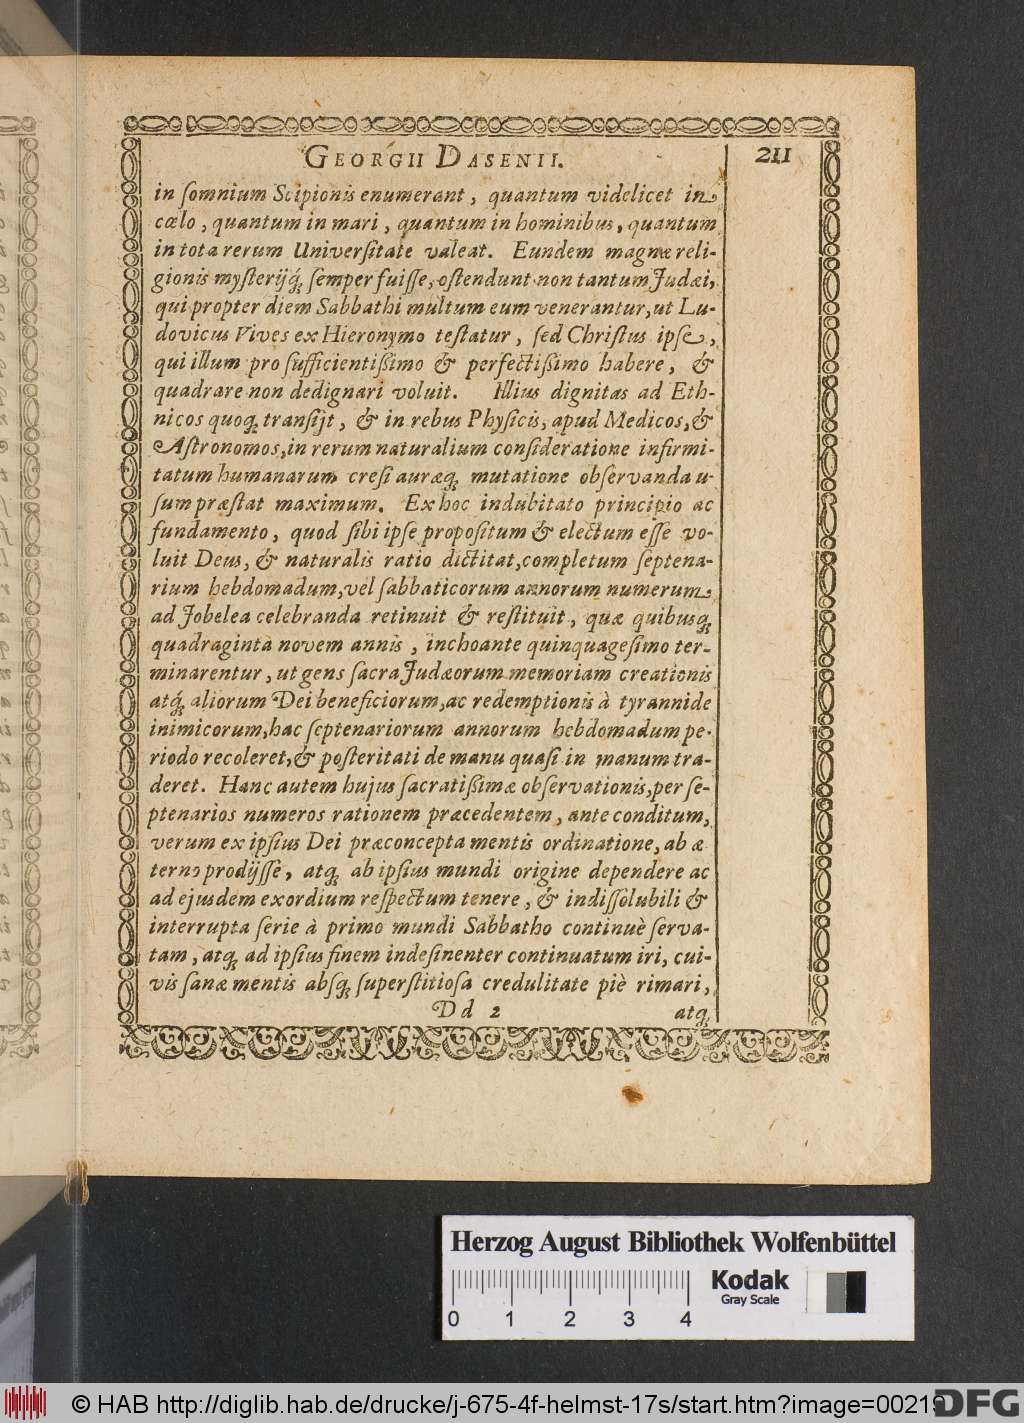 GEORGII DASENII. 211
in ſomnium Scipionis enumerant, quantum videlicet in
cœlo, quantum in mari, quantum in hominibus, quantum
in tota rerum Univerſitate valeat. Eundem magnæ reli-
gionis myſterijq́ꝫ ſemper fuiſſe, oſtendunt non tantum Judæi,
qui propter diem Sabbathi multum eum venerantur, ut Lu-
dovicus Vives ex Hieronymo teſtatur, ſed Chriſtus ipſe,
qui illum pro ſufficientißimo & perfectißimo habere, &
quadrare non dedignari voluit. Illius dignitas ad Eth-
nicos quoqꝫ tranſijt, & in rebus Phyſicis, apud Medicos, &
Aſtronomos, in rerum naturalium conſideratione infirmi-
tatum humanarum creſi auræqꝫ mutatione obſervanda u-
ſum præſtat maximum. Ex hoc indubitato principio ac
fundamento, quod ſibi ipſe propoſitum & electum eſſe vo-
luit Deus, & naturalis ratio dictitat, completum ſeptena-
rium hebdomadum, vel ſabbaticorum annorum numerum
ad Jobelea celebranda retinuit & reſtituit, quæ quibusqꝫ
quadraginta novem annis, inchoante quinquageſimo ter-
minarentur, ut gens ſacra Judæorum memoriam creationis
atq́ꝫ aliorum Dei beneficiorum, ac redemptionis à tyrannide
inimicorum, hac ſeptenariorum annorum hebdomadum pe-
riodo recoleret, & poſteritati de manu quaſi in manum tra-
deret. Hanc autem hujus ſacratißimæ obſervationis, per ſe-
ptenarios numeros rationem præcedentem, ante conditum,
verum ex ipſius Dei præconcepta mentis ordinatione, ab æ
terno prodijſſe, atqꝫ ab ipſius mundi origine dependere ac
ad ejusdem exordium reſpectum tenere, & indiſſolubili &
interrupta ſerie à primo mundi Sabbatho continuè ſerva-
tam, atqꝫ ad ipſius finem indeſinenter continuatum iri, cui-
vis ſanæ mentis absqꝫ ſuperſtitioſa credulitate piè rimari,
Dd 2 atqꝫ
Herzog August Bibliothek Wolfenbüttel
Kodak
Gray Scale
0 1 2 3 4
© HAB http://diglib.hab.de/drucke/j-675-4f-helmst-17s/start.htm?image=00219
DFG